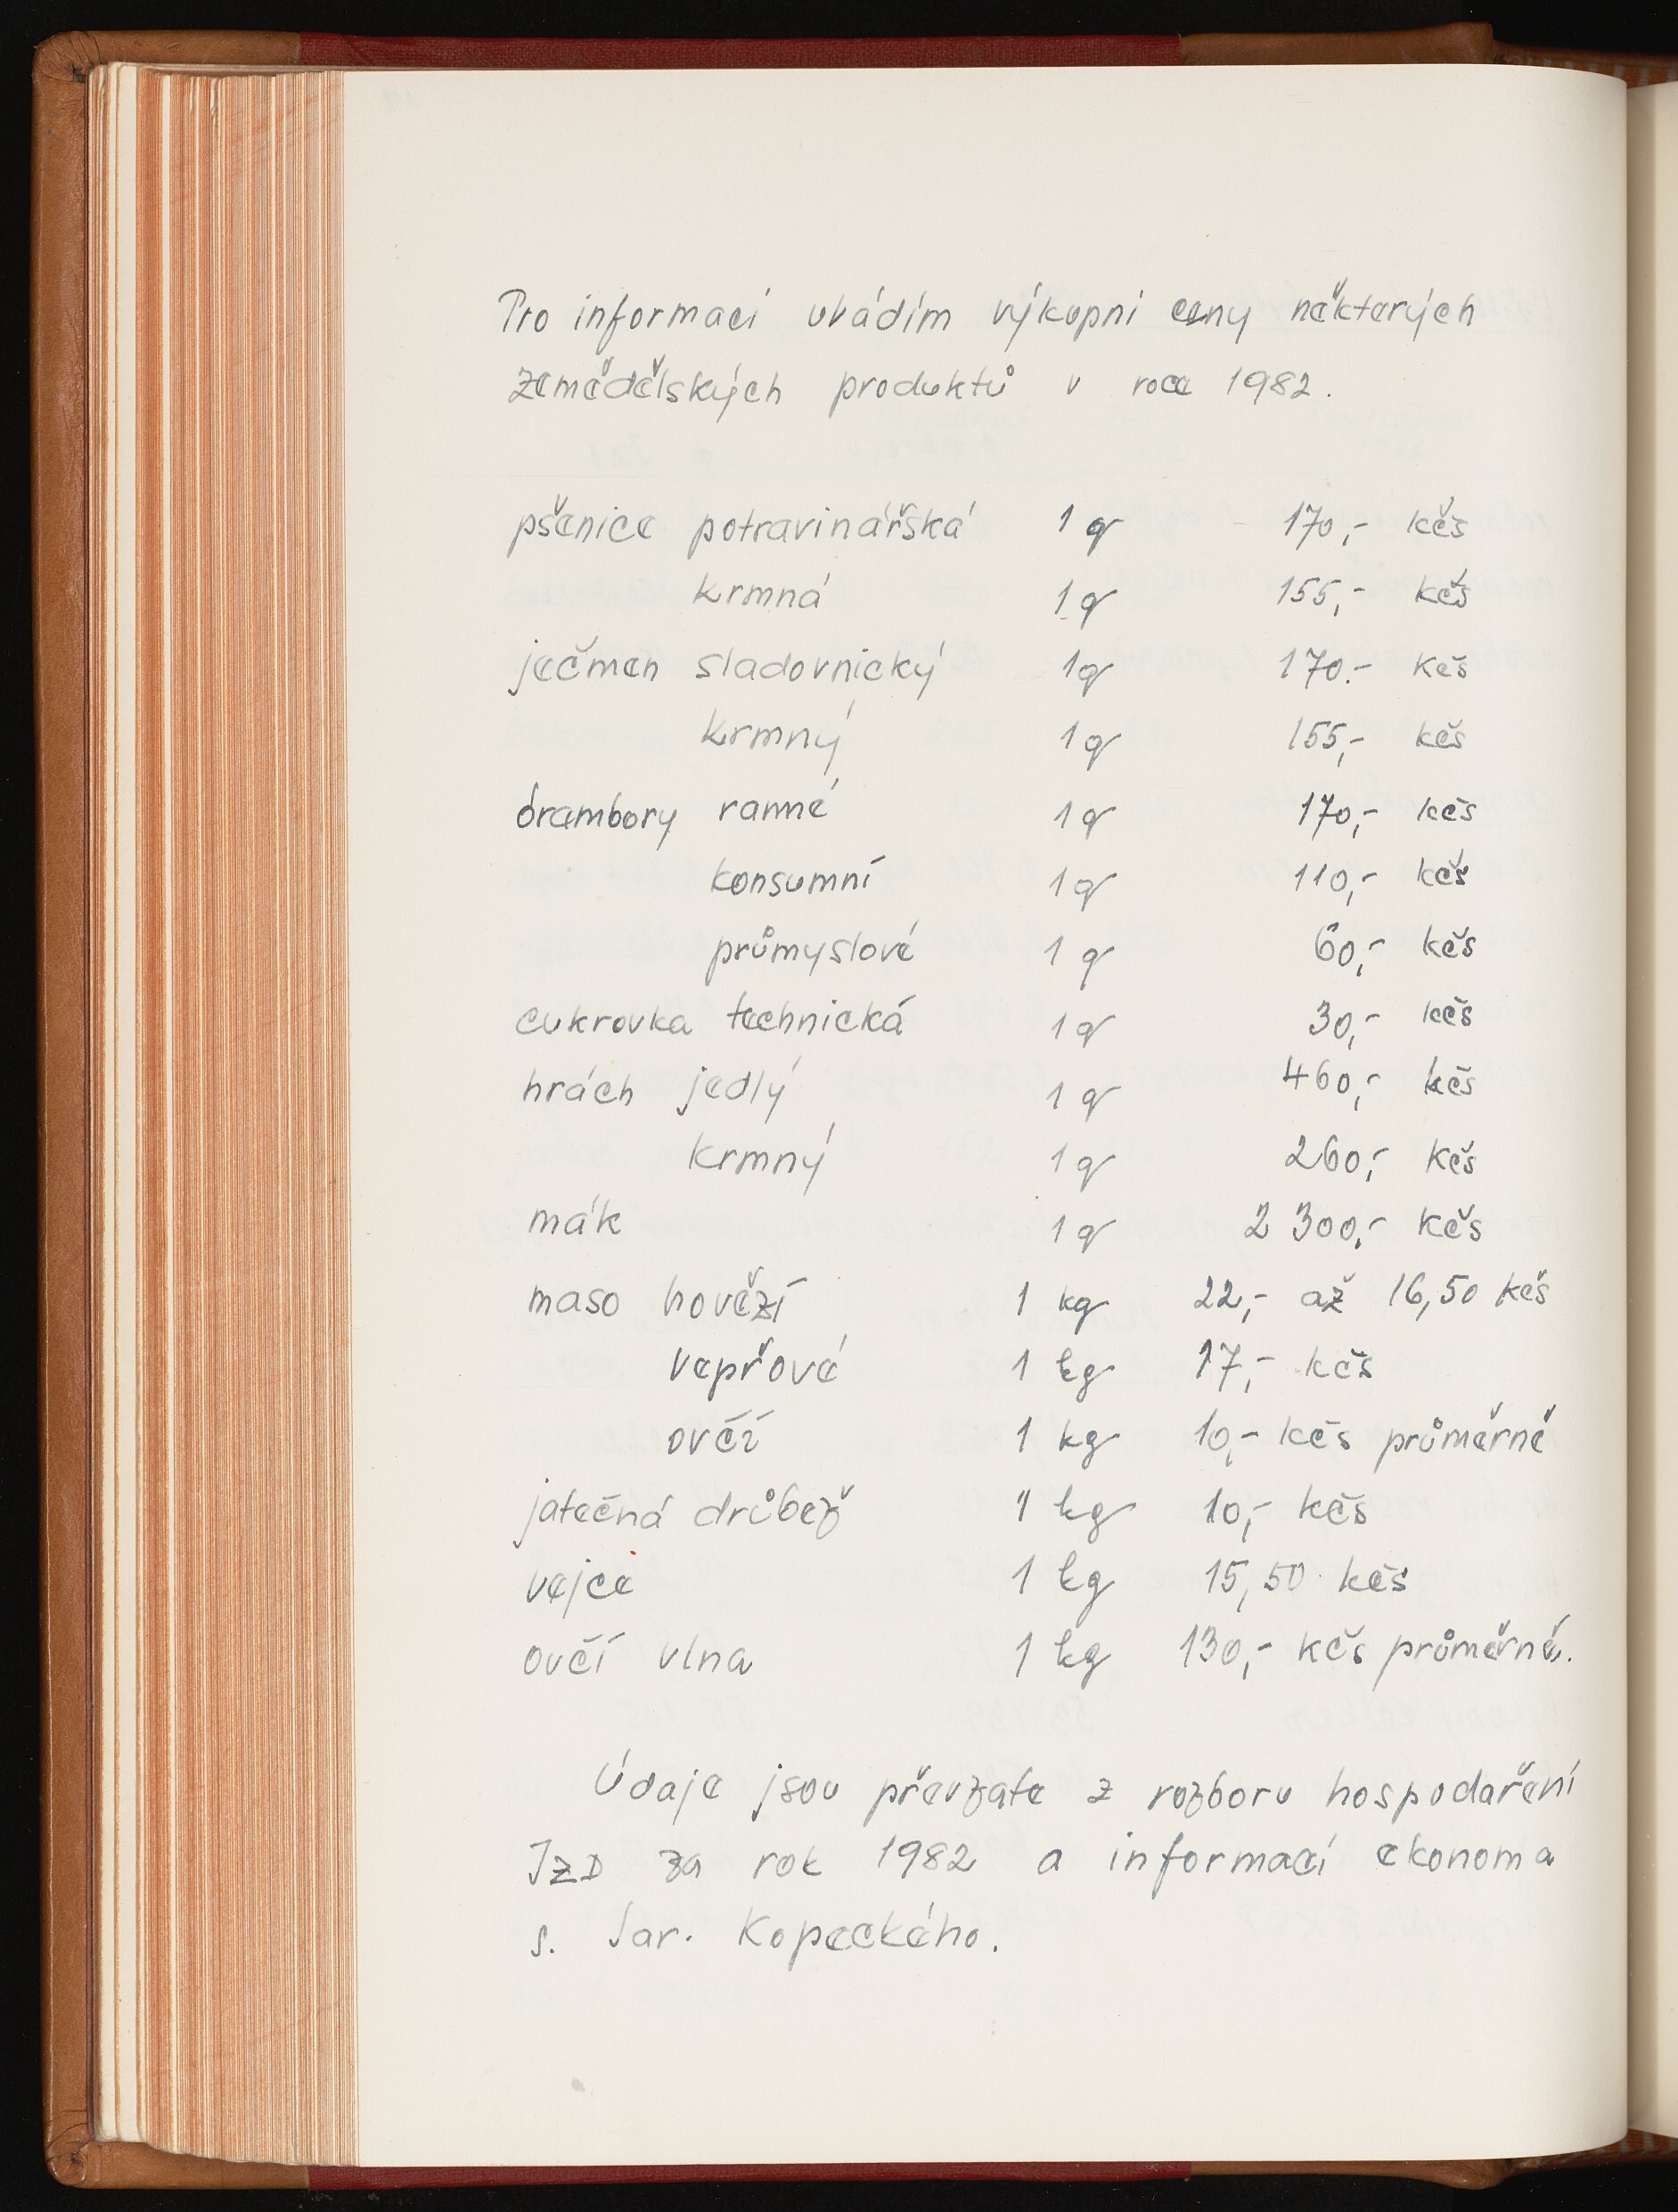 Pro informaci uvádím výkupní ceny některých
zemědělských produktů v roce 1982.
pšenice potravinářská 1 q 170,- kčs
krmná 1 q 155,- kčs
ječmen sladovnický 1q 170.- kčs
krmný 1q 155,- kčs
brambory ranné 1q 170,- kčs
konsumní 1q 110,- kčs
průmyslové 1 q 60,- kčs
cukrovka technická 1q 30,- kčs
hrách jedlý 1 q 460,- kčs
krmný 1q 260,- kčs
mák 1q 2 300,- kčs
maso hovězí 1 kg 22,- až 16,50 kčs
vepřové 1 kg 17,- kčs
ovčí 1 kg 10,- kčs průměrně
jatečná drůbež 1 kg 10,- kčs
vejce 1 kg 15,50 kčs
ovčí vlna 1 kg 130,- kčs průměrně.
Údaje jsou převzate z rozboru hospodaření
JZD za rok 1982 a informací ekonoma
s. Jar. Kopeckého.